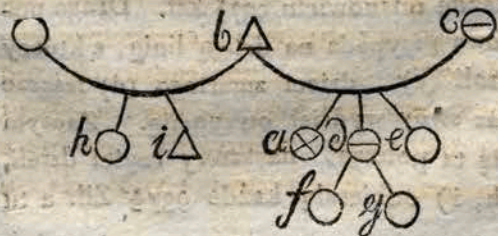 b c
h i a d e
f g